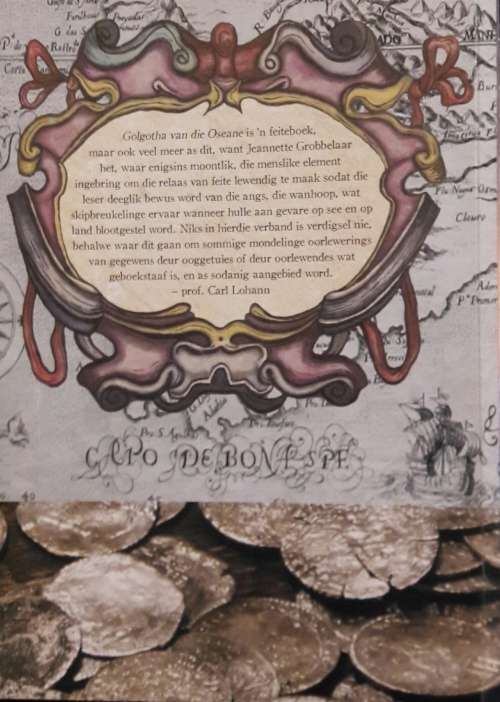 Golgotha van die Oseane is 'n feiteboek,
maar ook veel meer as dit, want Jeannette Grobbelaar
het, waar enigsins moontlik, die menslike element
ingebring om die relaas van feite lewendig te maak sodat die
leser deeglik bewus word van die angs, die wanhoop, wat
skipbreukelinge ervaar wanneer hulle aan gevare op see en op
land blootgestel word. Niks in hierdie verband is verdigsel nie,
behalwe waar dit gaan om sommige mondelinge oorlewerings
van gegewens deur ooggetuies of deur oorlewendes wat
geboekstaaf is, en as sodanig aangebied word.
– prof. Carl Lohann
CAPO DE BONE SPE
Cleuro
40